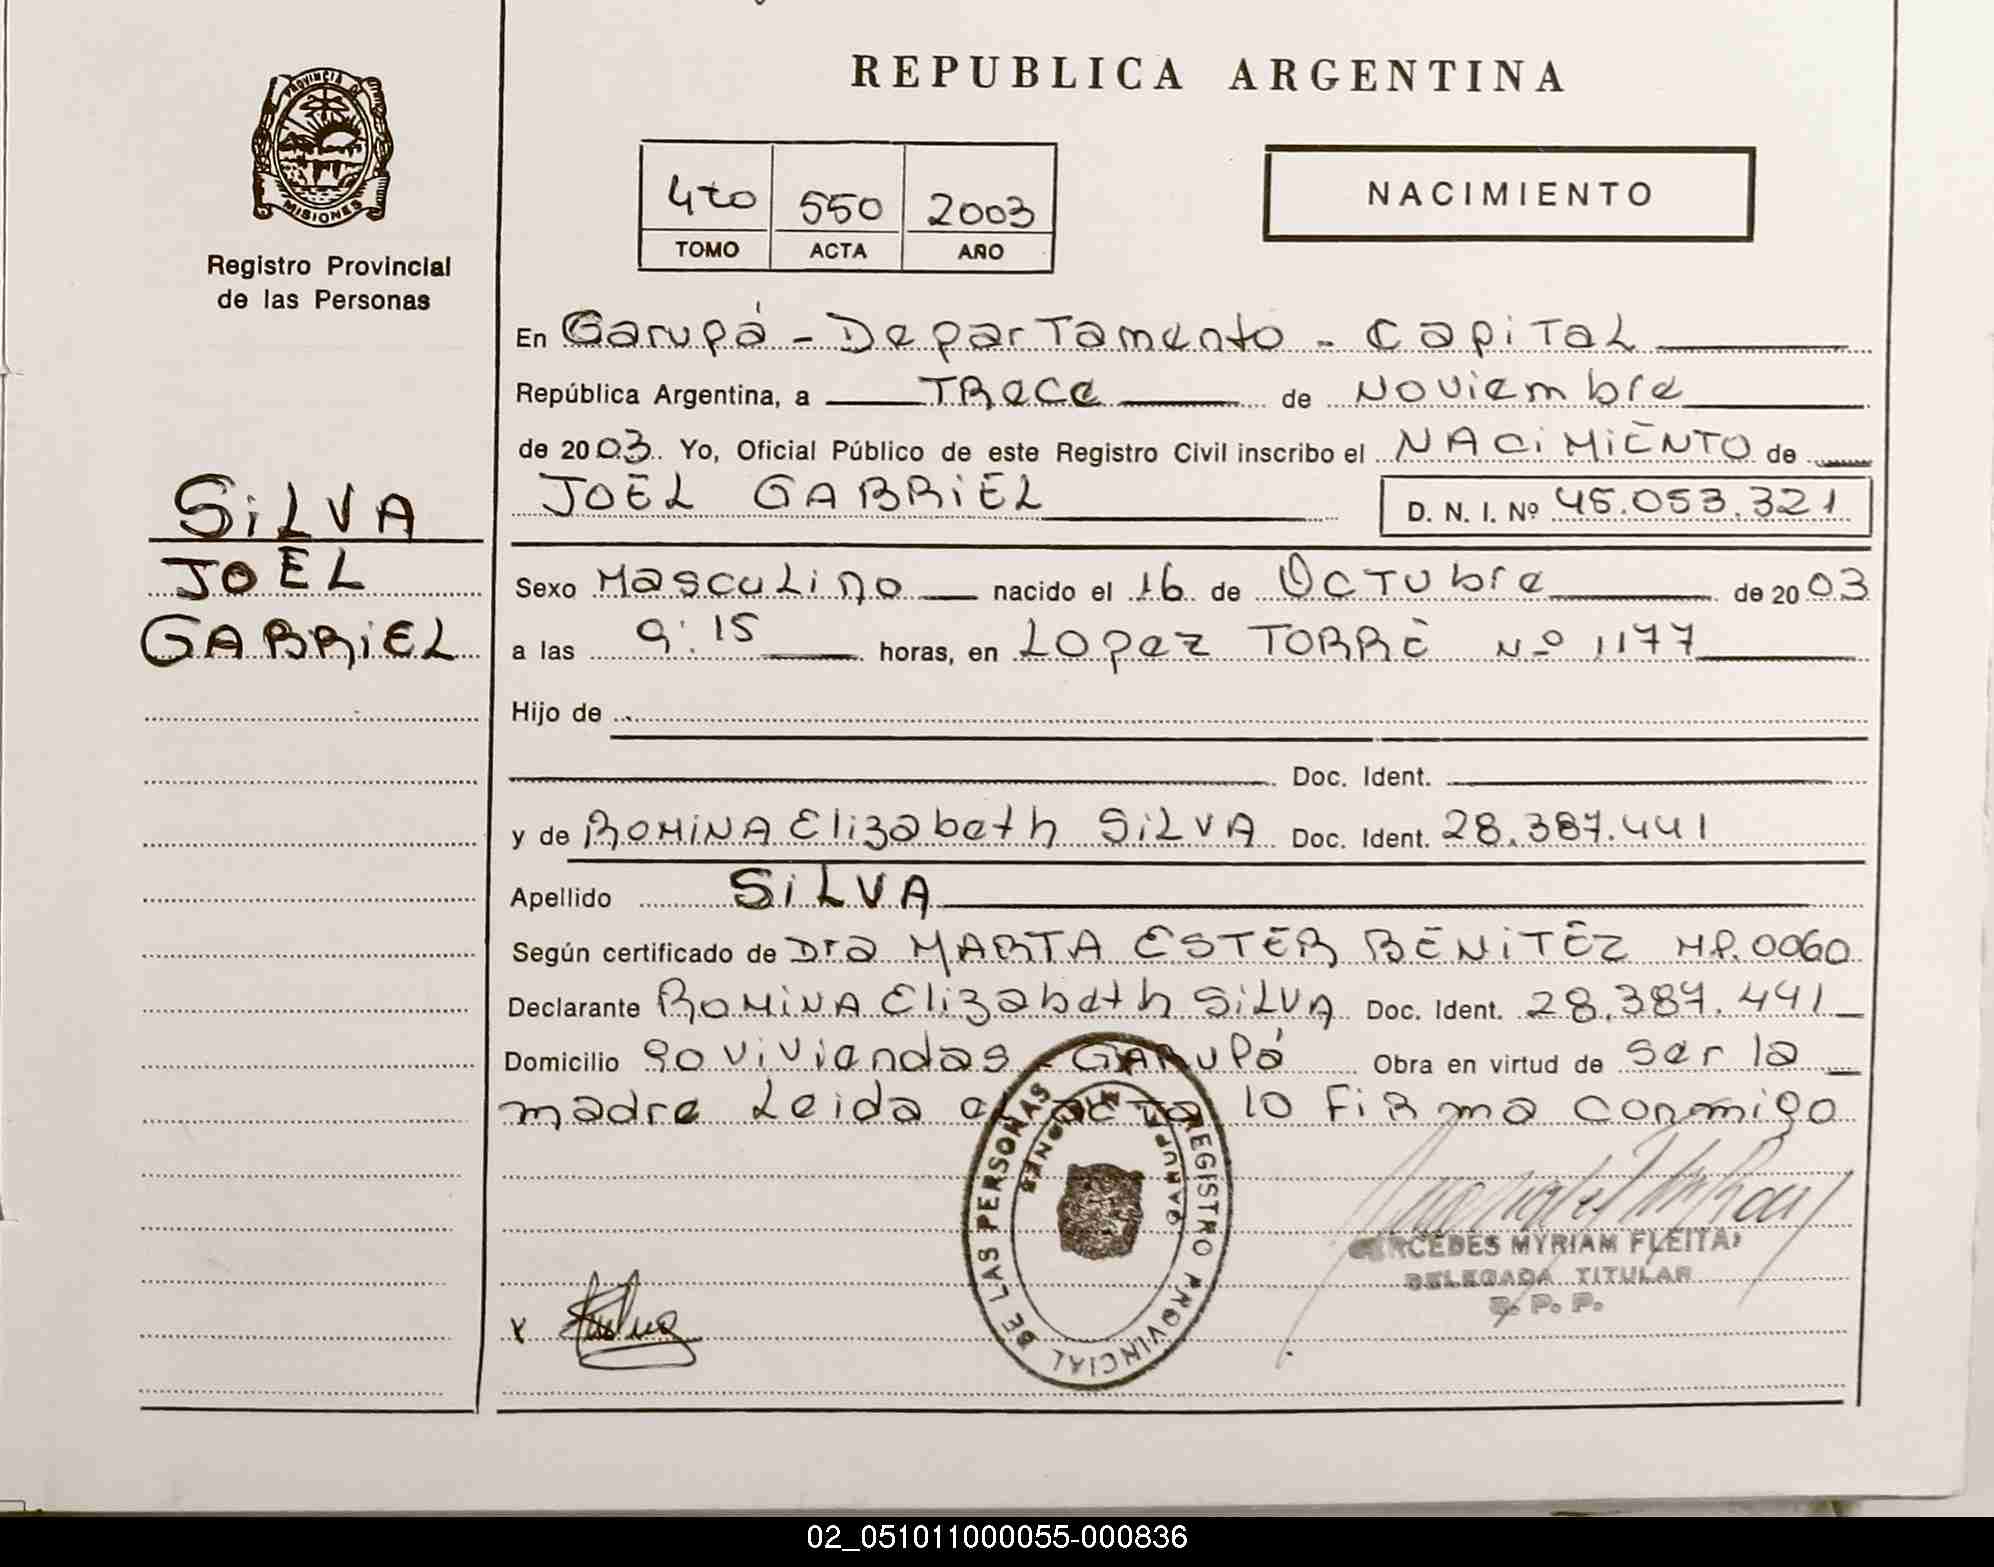 REPUBLICA ARGENTINA
PROVINCIA DE
MISIONES
Registro Provincial
de las Personas
4to 550 2003
TOMO ACTA AÑO
NACIMIENTO
En Garupá - Departamento - Capital
República Argentina, a Trece de Noviembre
de 2003. Yo, Oficial Público de este Registro Civil inscribo el NACIMIENTO de
JOEL GABRIEL D. N. I. Nº 45.053.321
SILVA
JOEL
GABRIEL
Sexo Masculino nacido el 16 de Octubre de 2003
a las 9:15 horas, en Lopez TORRE Nº 1177
Hijo de
Doc. Ident.
y de ROMINA Elizabeth SILVA Doc. Ident. 28.387.441
Apellido SILVA
Según certificado de Dra MARTA ESTER BENITEZ M.P. 0060
Declarante ROMINA Elizabeth SILVA Doc. Ident. 28.387.441
Domicilio 90 viviendas - GARUPá Obra en virtud de ser la
madre Leida el acta lo Firma conmigo
REGISTRO PROVINCIAL DE LAS PERSONAS
GARUPA MISIONES
MERCEDES MYRIAM FLEITAS
DELEGADA TITULAR
R. P. P.
x
02_051011000055-000836